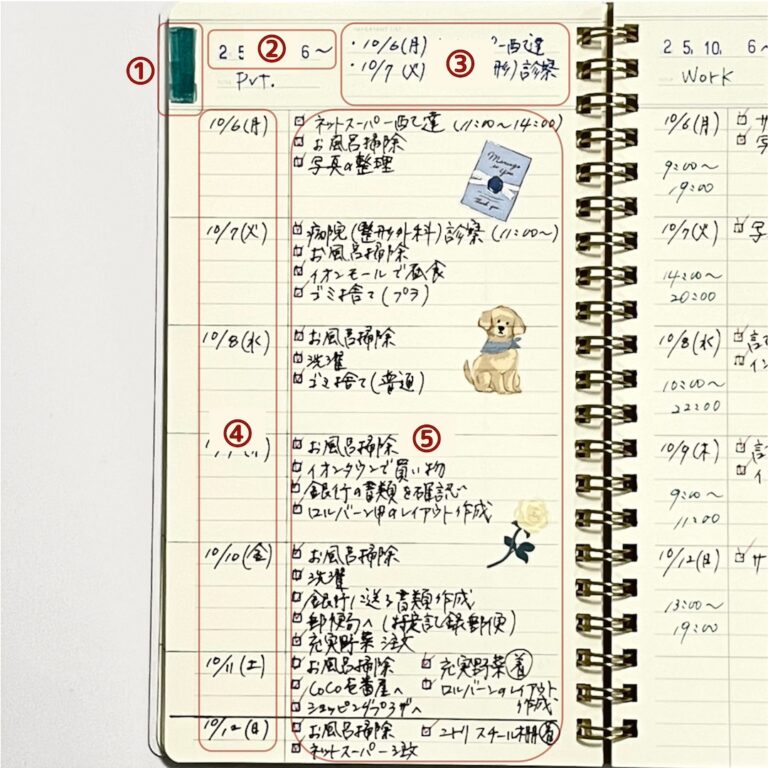 ①
② 25 6～
Pvt.
③
・10/6(月) 配達
・10/7(火) 形)診察
④
⑤
10/6(月)
ネットスーパー配達 (11:00～14:00)
お風呂掃除
写真の整理
10/7(火)
病院(整形外科)診察 (11:00～)
お風呂掃除
イオンモールで昼食
ゴミ捨て(プラ)
10/8(水)
お風呂掃除
洗濯
ゴミ捨て(普通)
お風呂掃除
イオンタウンで買い物
銀行の書類を確認
ロルバーン用のレイアウト作成
10/10(金)
お風呂掃除
洗濯
銀行に送る書類作成
郵便局へ (特定記録郵便)
充実野菜注文
10/11(土)
お風呂掃除 充実野菜着
CoCo壱番屋へ ロルバーンのレイアウト
ショッピングプラザへ 作成
10/12(日)
お風呂掃除 ニトリ スチール棚着
ネットスーパー注文
25.10. 6～
Work
10/6(月)
サ
写
9:00～
19:00
10/7(火)
写
14:00～
20:00
10/8(水)
イン
10:00～
22:00
10/9(木)
イ
9:00～
11:00
10/12(日)
サ
13:00～
19:00